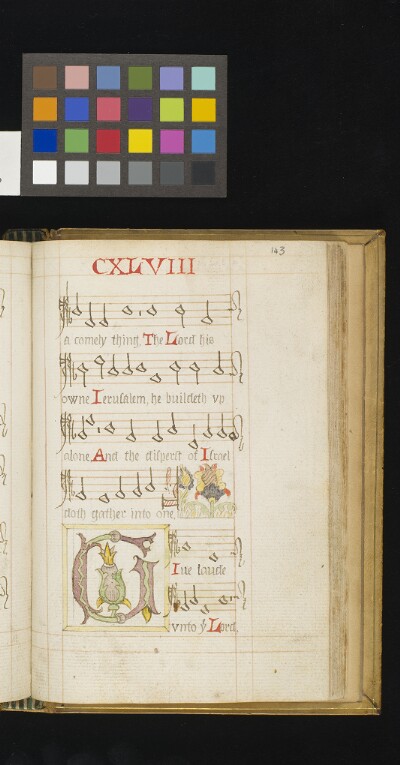 143
CXLVIII
a comely thing, The Lord his
owne Ierusalem, he buildeth vp
alone, And the disperst of Israel
doth gather into one.
Giue laude
vnto yͤ Lord,